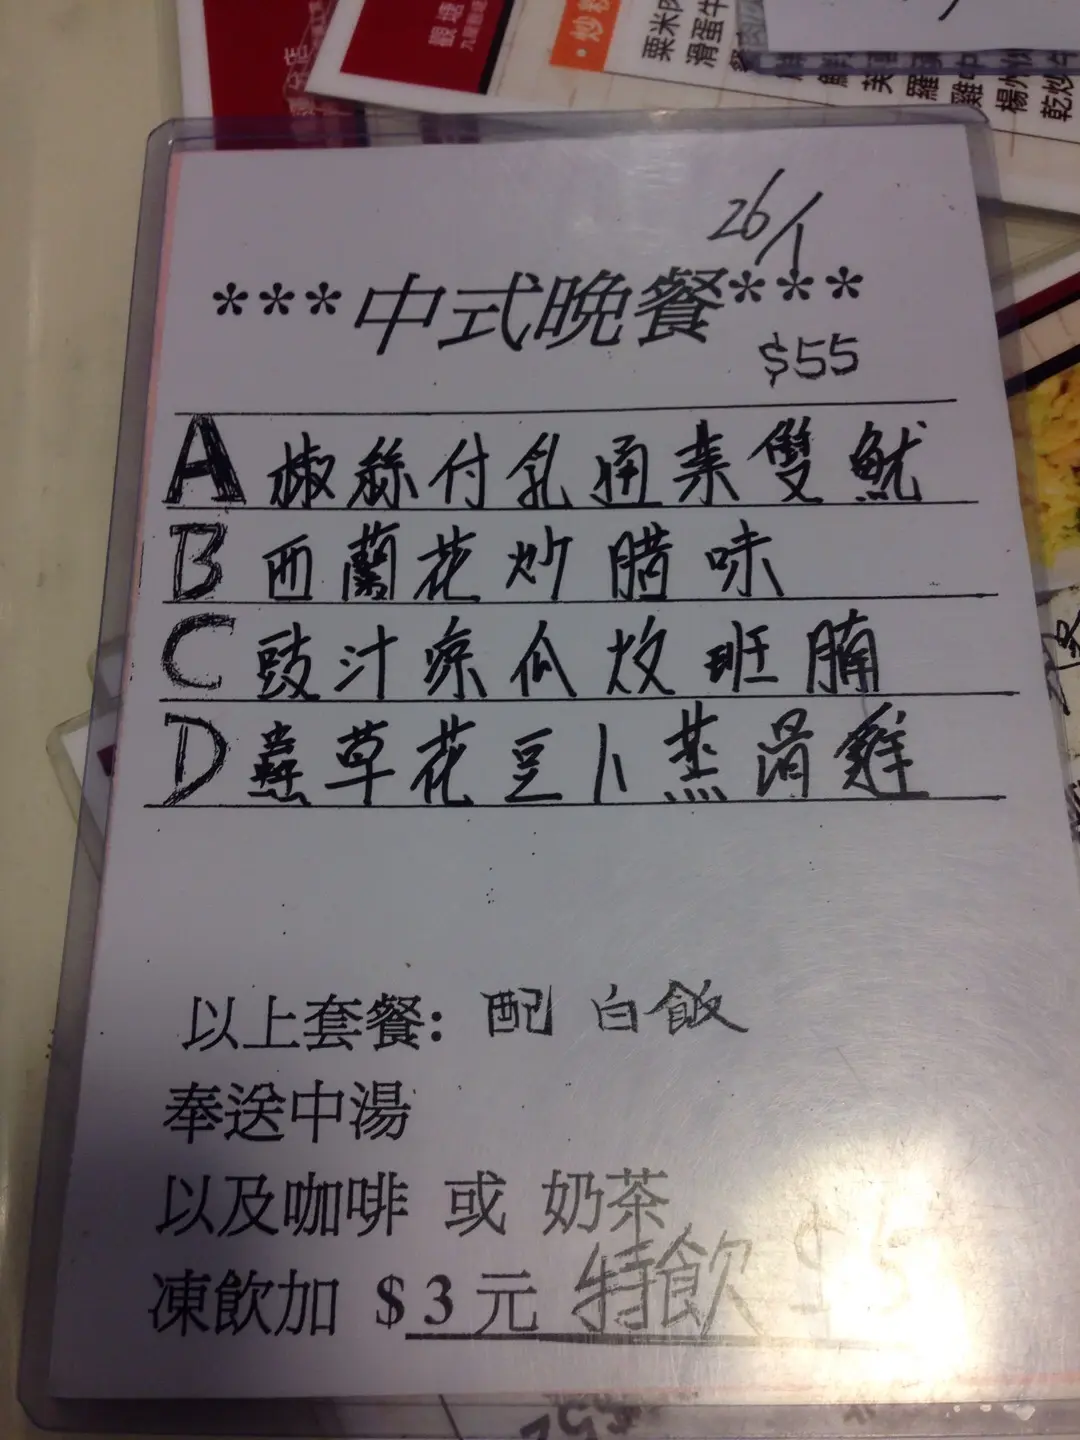 觀塘
26/1
***中式晚餐***
$55
A 椒絲付乳通菜雙魷
B 西蘭花炒腊味
C 豉汁凉瓜炆班腩
D 蟲草花豆卜蒸滑雞
以上套餐: 配白飯
奉送中湯
以及咖啡 或 奶茶
凍飲加 $3元 特飲